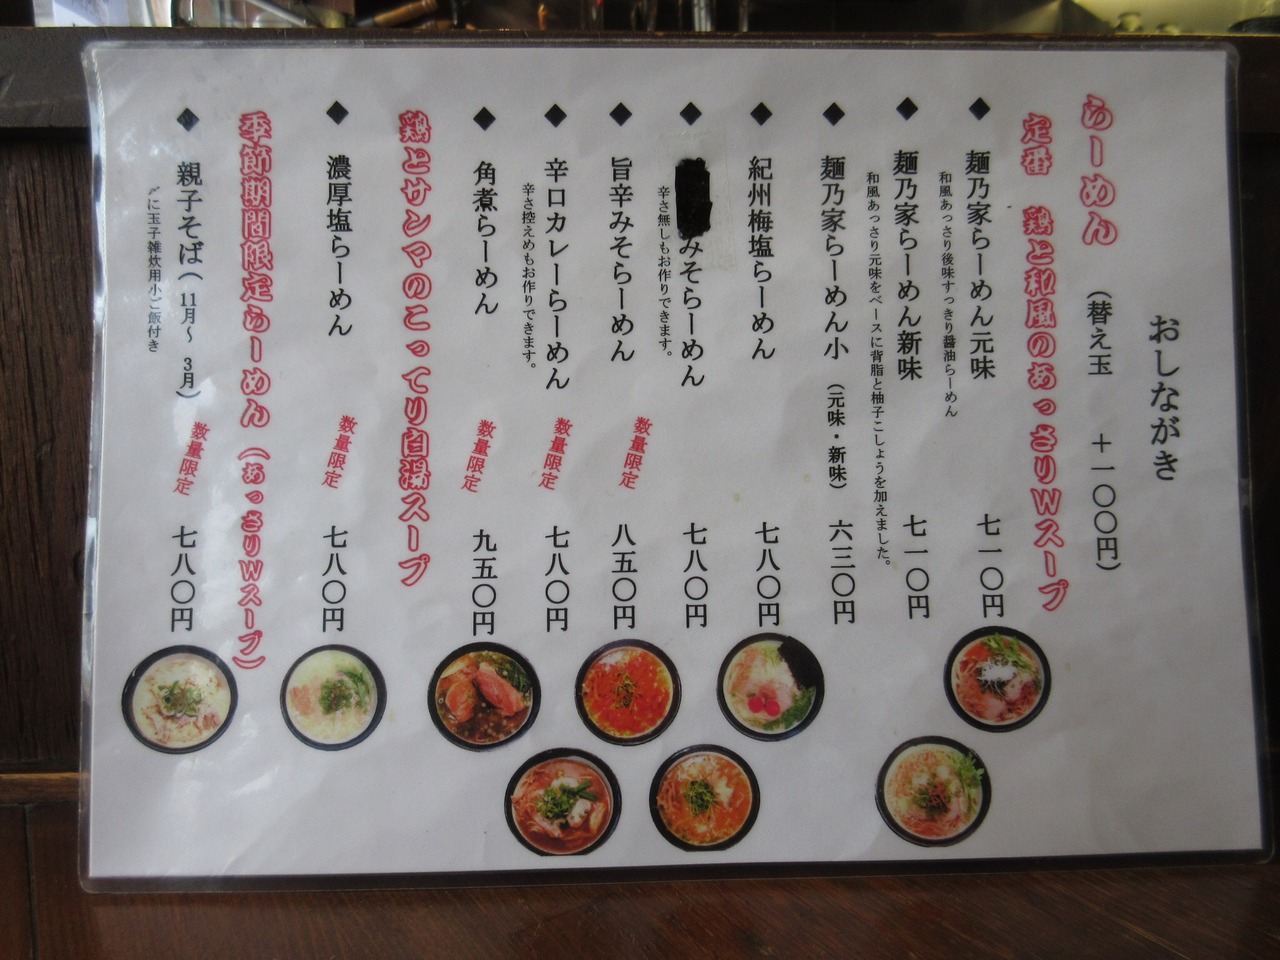 おしながき
らーめん （替え玉 ＋一〇〇円）
定番 鶏と和風のあっさりＷスープ
◆ 麺乃家らーめん元味 七一〇円
和風あっさり後味すっきり醤油らーめん
◆ 麺乃家らーめん新味 七一〇円
和風あっさり元味をベースに背脂と柚子こしょうを加えました。
◆ 麺乃家らーめん小（元味・新味） 六三〇円
◆ 紀州梅塩らーめん 七八〇円
◆ みそらーめん 七八〇円
辛さ無しもお作りできます。
◆ 旨辛みそらーめん 数量限定 八五〇円
◆ 辛口カレーらーめん 数量限定 七八〇円
辛さ控えめもお作りできます。
◆ 角煮らーめん 数量限定 九五〇円
鶏とサンマのこってり白湯スープ
◆ 濃厚塩らーめん 数量限定 七八〇円
季節期間限定らーめん（あっさりＷスープ）
◆ 親子そば（11月～3月） 数量限定 七八〇円
〆に玉子雑炊用小ご飯付き